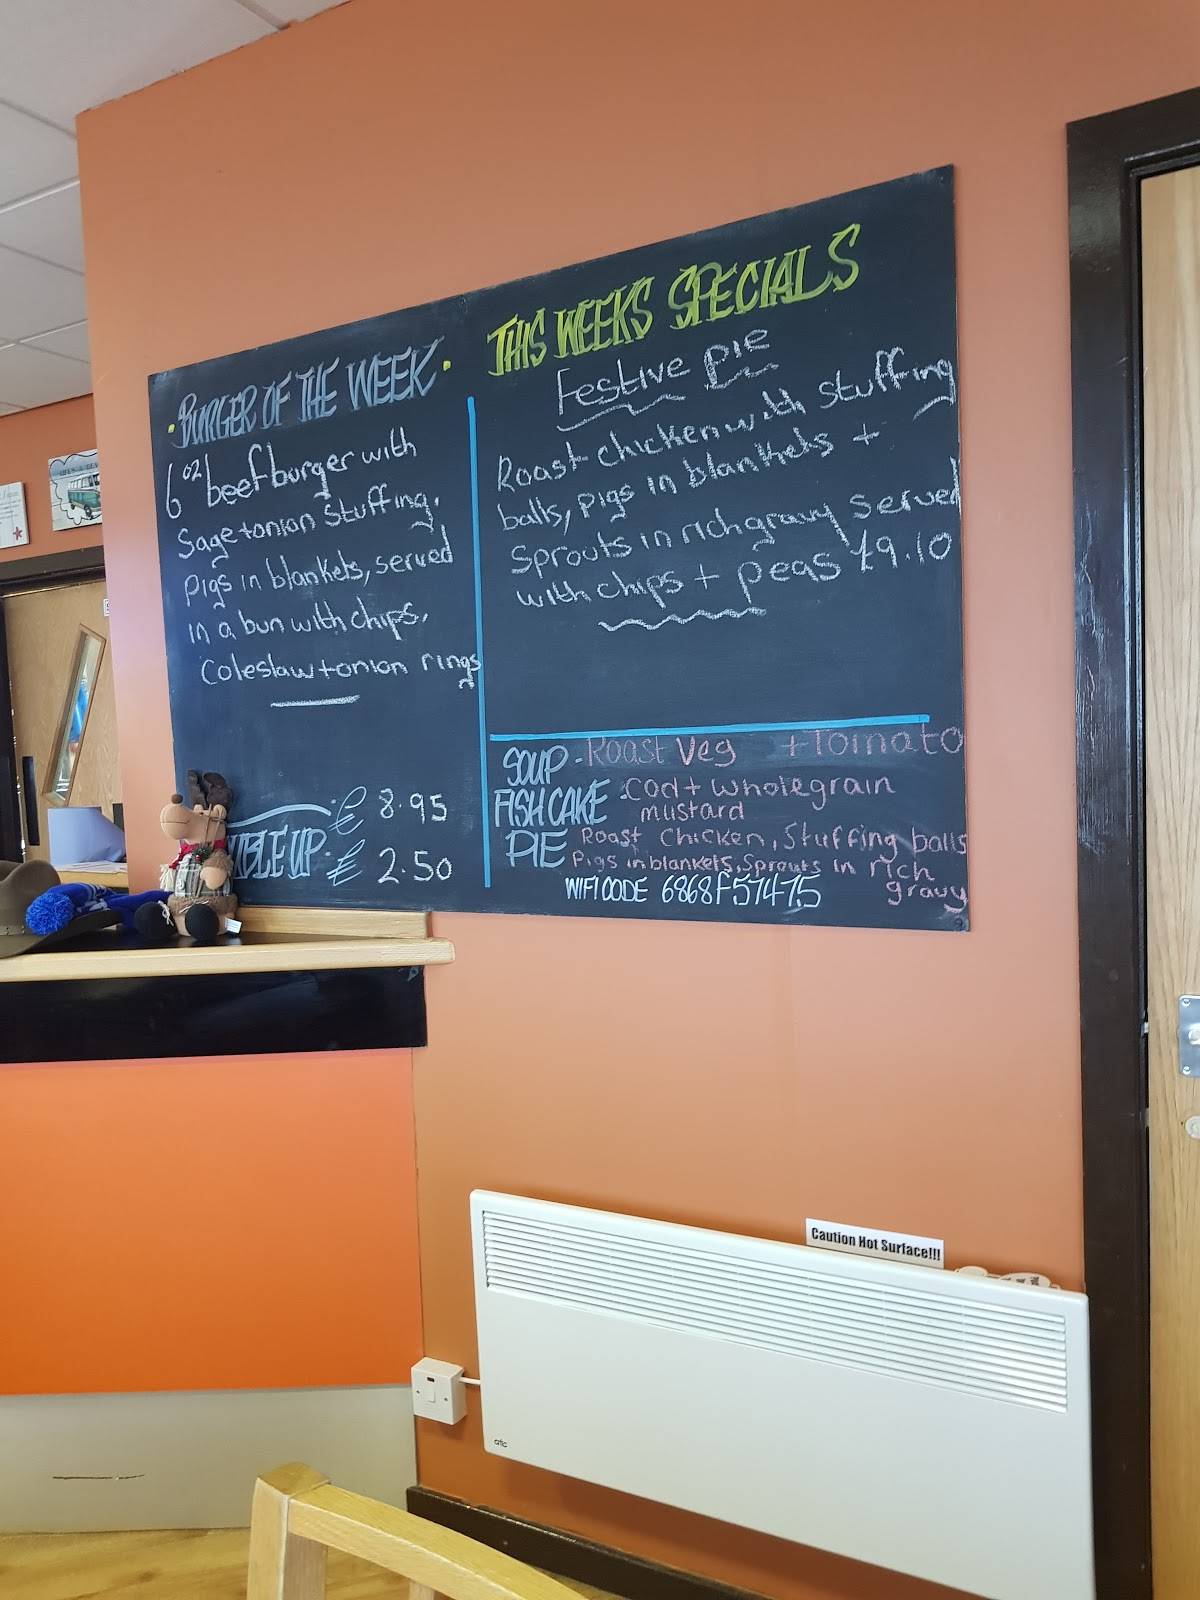 · BURGER OF THE WEEK ·
6oz beef burger with
Sage + onion stuffing,
pigs in blankets, served
in a bun with chips,
Coleslaw + onion rings
£ 8.95
UBLE UP · £ 2.50
THIS WEEKS SPECIALS
Festive pie
Roast chicken with stuffing
balls, pigs in blankets +
Sprouts in rich gravy served
with chips + peas £9.10
SOUP - Roast Veg + Tomato
FISH CAKE · Cod + wholegrain
mustard
PIE Roast Chicken, Stuffing balls
Pigs in blankets, Sprouts in rich
gravy
WIFI CODE 6868F57475
Caution Hot Surface!!!